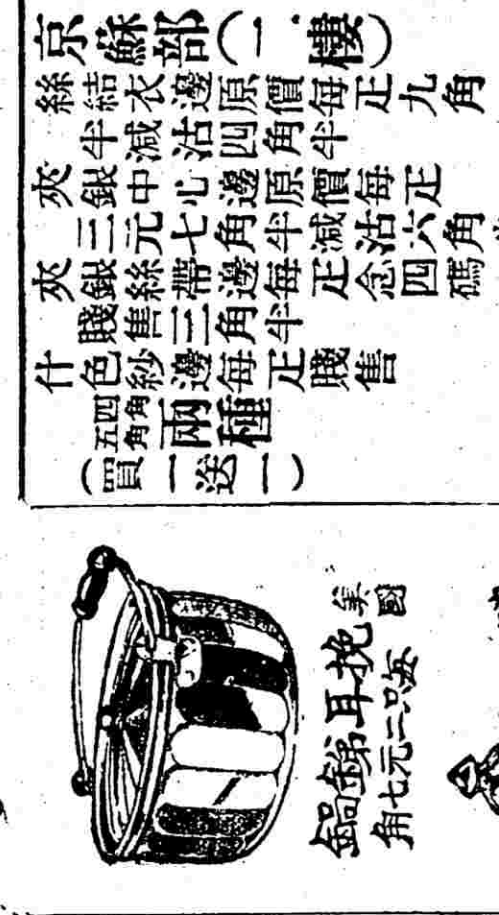 京蘇部(一樓)
絲結衣邊原價每正九角
半減沽四角半
夾銀中心邊原價每正
三元七角半減沽六角
夾銀絲帶邊每正念四碼
賤售三角半
什色紗邊每正賤售
五角四角兩種
(買一送一)
美國
挽耳銻鍋
每只二元七角